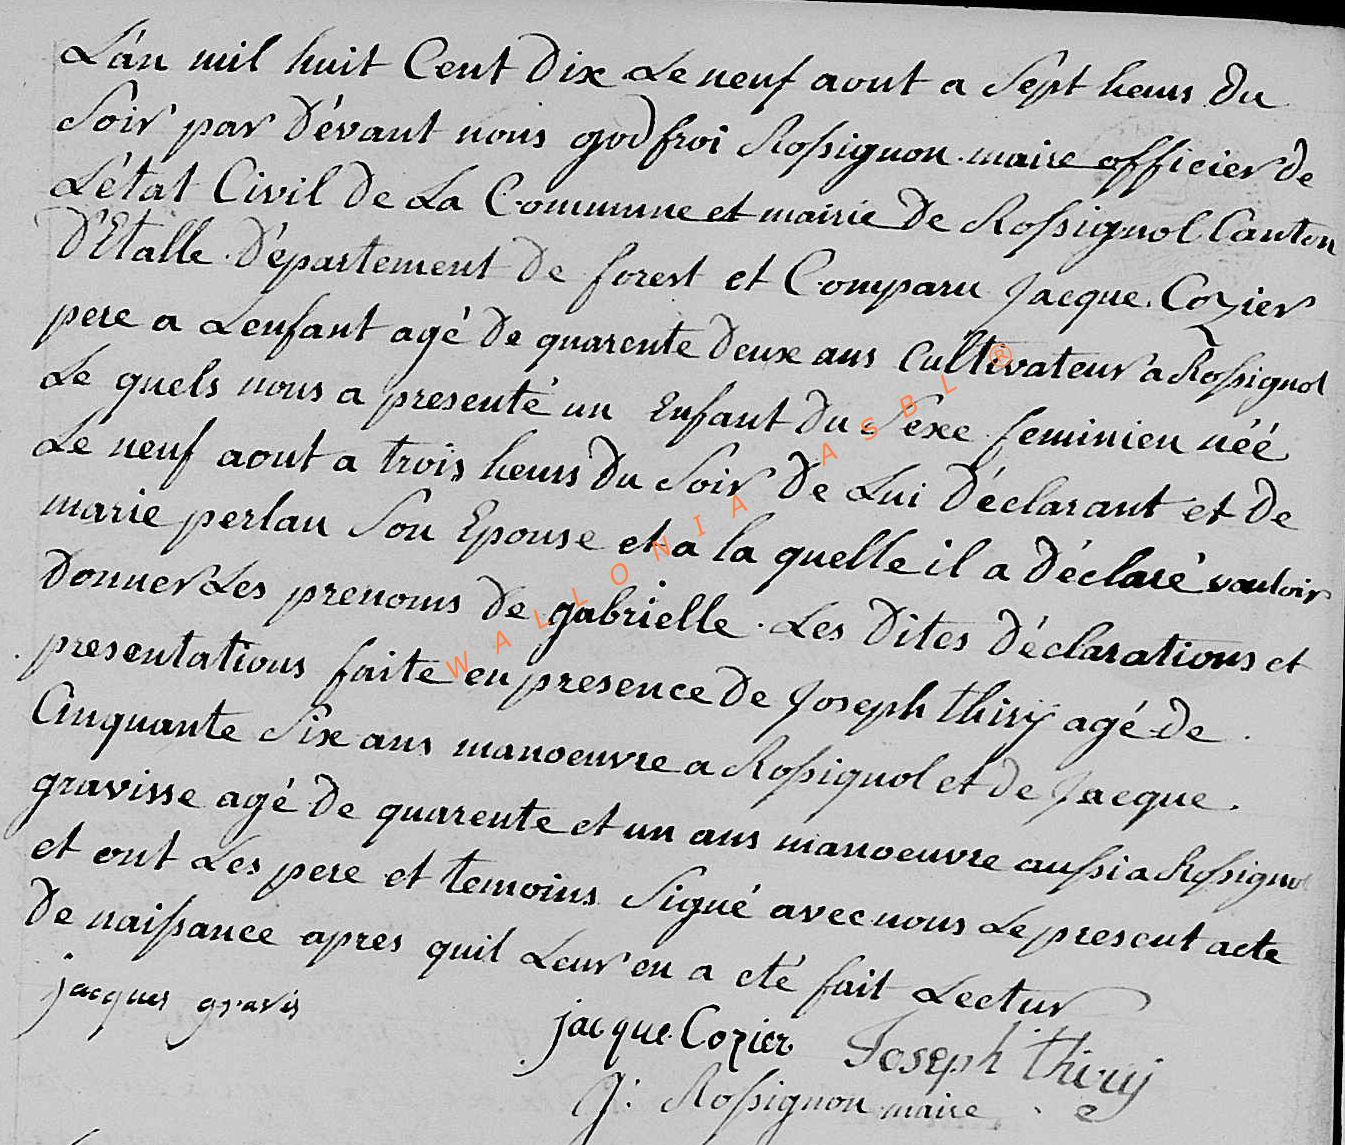 L'an mil huit Cent Dix Le neuf aout a Sept heurs Du
Soir par Dévant nous godfroi Rossignon maire officier de
L'état Civil de La Commune et mairie De Rossignol Canton
D'Etalle Département De forest et Comparu Jacque Cozier
pere a L'enfant agé De quarente Deux ans Cultivateur a Rossignol
Le quels nous a presenté un Enfant Du Sexe feminien néé
Le neuf aout a trois heurs Du Soir De Lui Déclarant et De
marie perlau Son Epouse et a la quelle il a Déclaré vouloir
Donner Les prenoms De gabrielle. Les Dites Déclarations et
presentations faite en presence De Joseph thiry agé De
Cinquante Six ans manoeuvre a Rossignol et de Jacque
gravisse agé De quarente et un ans manoeuvre aussi a Rossignol
et ont Les pere et temoins Signé avec nous Le present acte
De naissance apres quil Leur en a eté fait Lectur
jacques gravis
jacque Cozier Joseph thiry
G: Rossignon maire
WALLONIA ASBL ®